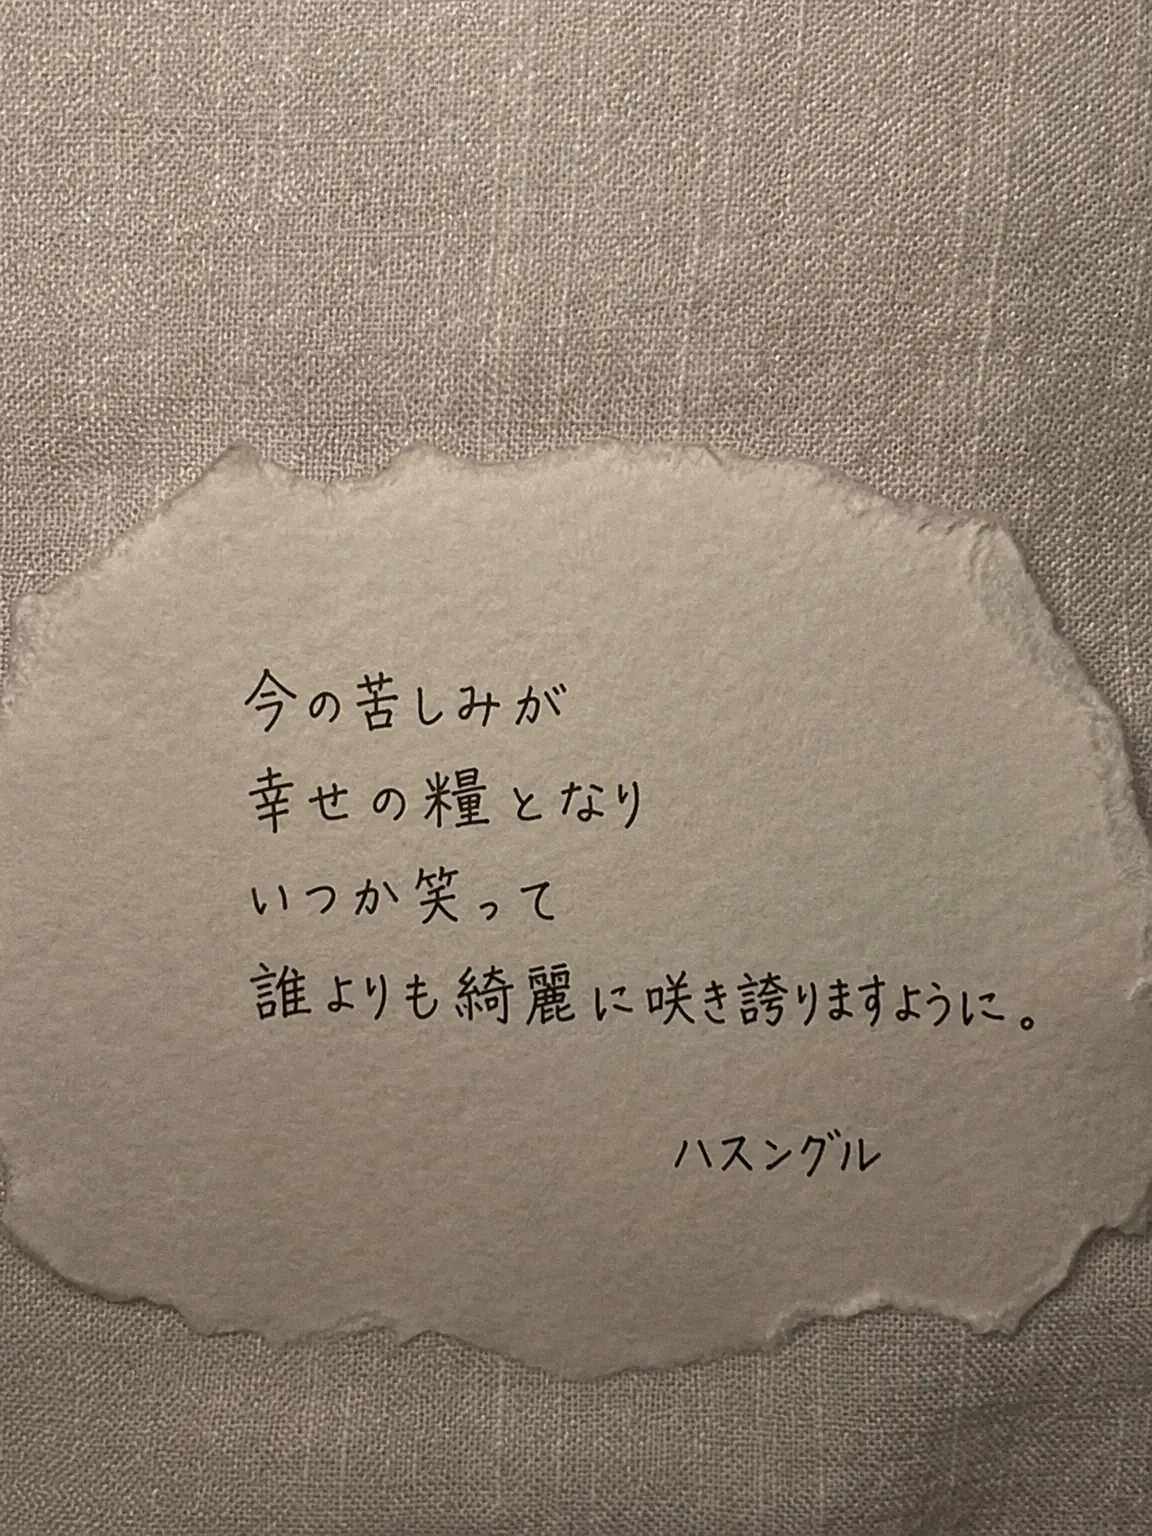 今の苦しみが
幸せの糧となり
いつか笑って
誰よりも綺麗に咲き誇りますように。
ハスングル